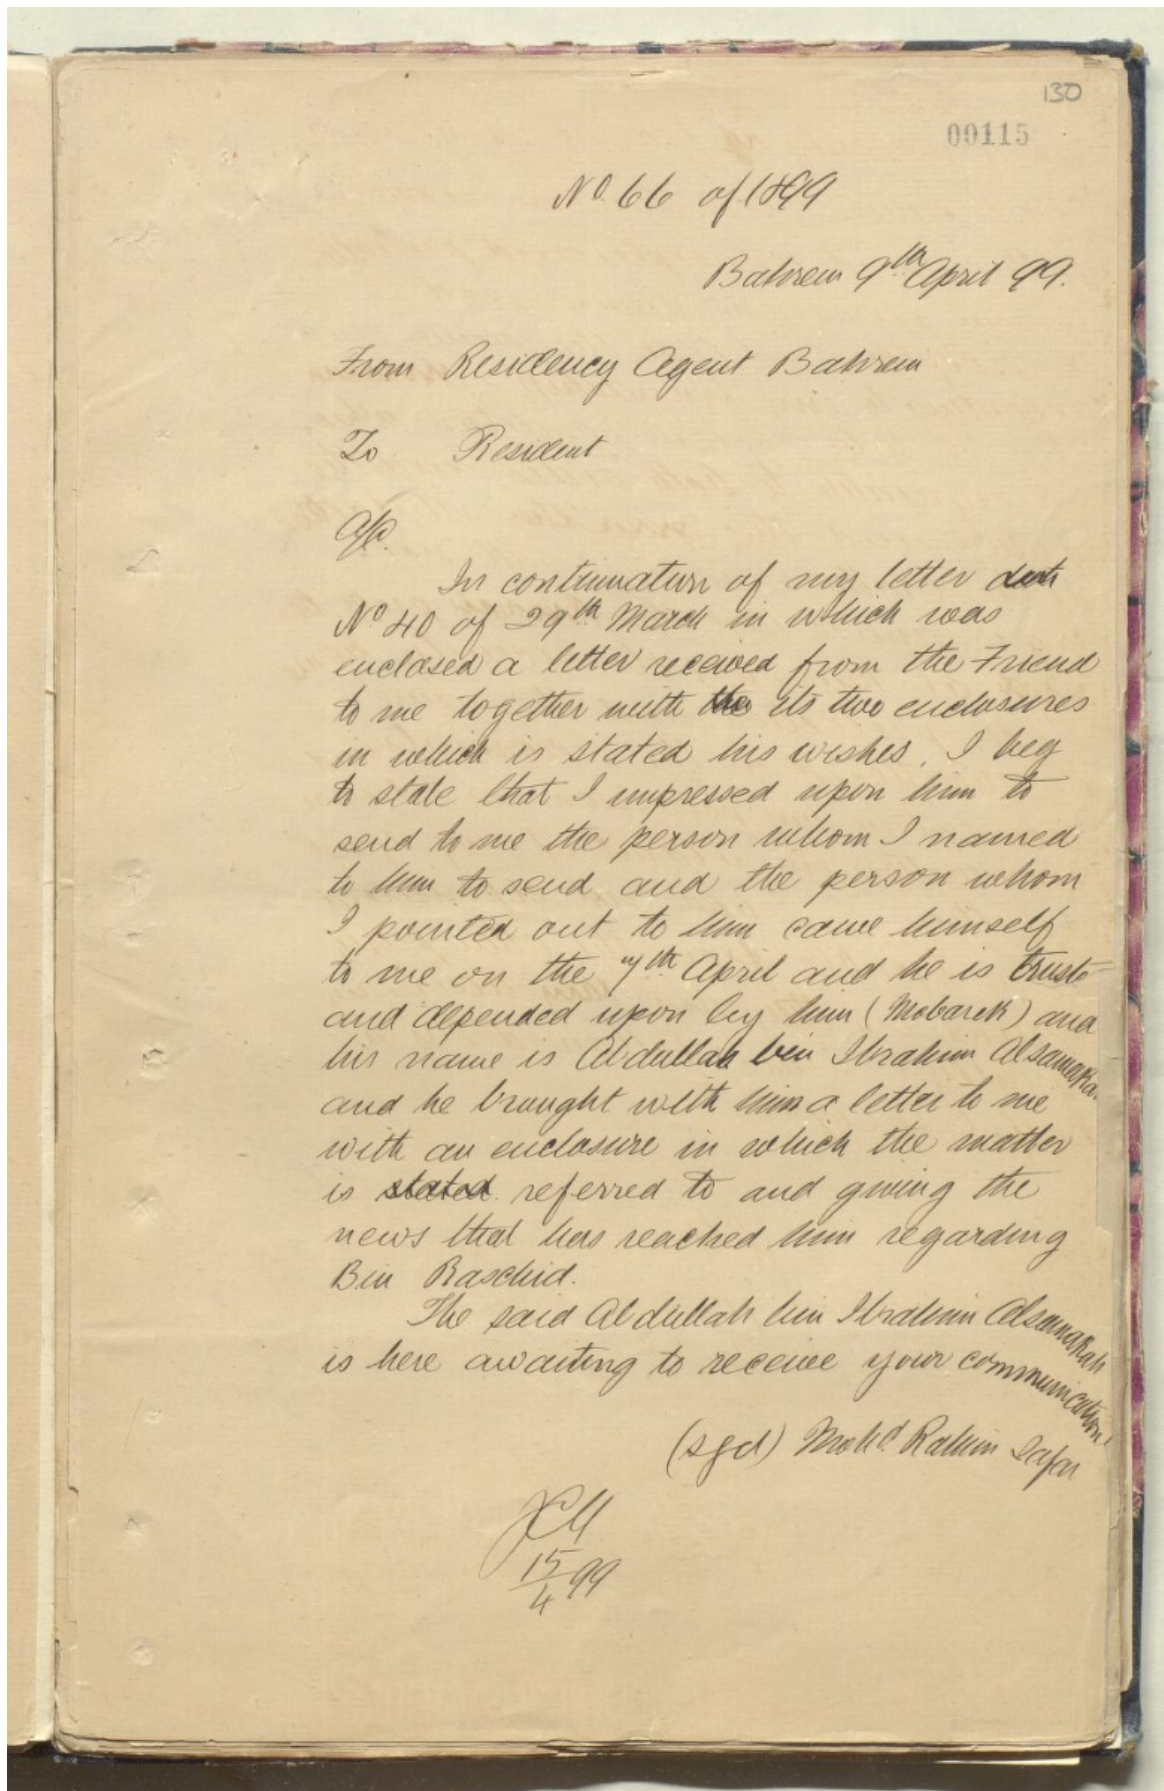 130
00115
No. 66 of 1899
Bahrein 9th April 99.
From Residency Agent Bahrein
To Resident
A/C.
In continuation of my letter
No 40 of 29th March in which was
enclosed a letter received from the Friend
to me together with the its two enclosures
in which is stated his wishes, I beg
to state that I impressed upon him to
send to me the person whom I named
to him to send and the person whom
I pointed out to him came himself
to me on the 7th April and he is trusted
and depended upon by him (Mobarek) and
his name is Abdullah bin Ibrahim Alsamakah
and he brought with him a letter to me
with an enclosure in which the matter
is stated referred to and giving the
news that has reached him regarding
Bin Raschid.
The said Abdullah bin Ibrahim Alsamakah
is here awaiting to receive your communication
(sgd) Mohd. Rahim Safar
15/4 99